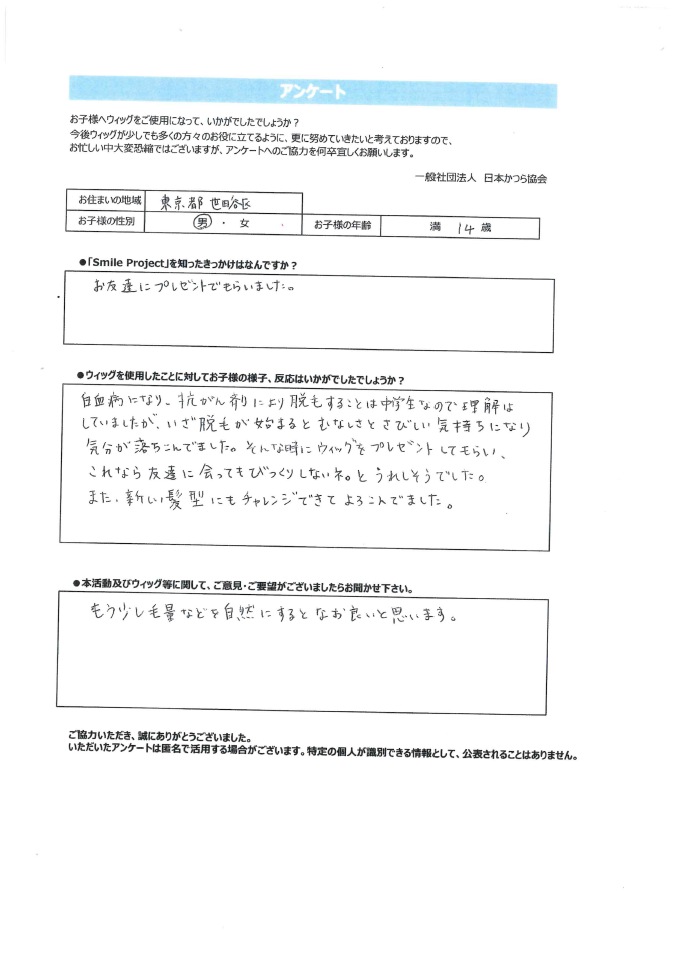 アンケート
お子様へウィッグをご使用になって、いかがでしたでしょうか？
今後ウィッグが少しでも多くの方々のお役に立てるように、更に努めていきたいと考えておりますので、
お忙しい中大変恐縮ではございますが、アンケートへのご協力を何卒宜しくお願いします。
一般社団法人 日本かつら協会
お住まいの地域 東京都 世田谷区
お子様の性別 男 ・ 女 お子様の年齢 満 14 歳
●「Smile Project」を知ったきっかけはなんですか？
お友達にプレゼントでもらいました。
●ウィッグを使用したことに対してお子様の様子、反応はいかがでしたでしょうか？
白血病になり、抗がん剤により脱毛することは中学生なので理解は
していましたが、いざ脱毛が始まるとむなしさとさびしい気持ちになり
気分が落ちこんでました。そんな時にウィッグをプレゼントしてもらい、
これなら友達に会ってもびっくりしないネ。とうれしそうでした。
また、新しい髪型にもチャレンジできてよろこんでました。
●本活動及びウィッグ等に関して、ご意見・ご要望がございましたらお聞かせ下さい。
もう少し毛量などを自然にするとなお良いと思います。
ご協力いただき、誠にありがとうございました。
いただいたアンケートは匿名で活用する場合がございます。特定の個人が識別できる情報として、公表されることはありません。